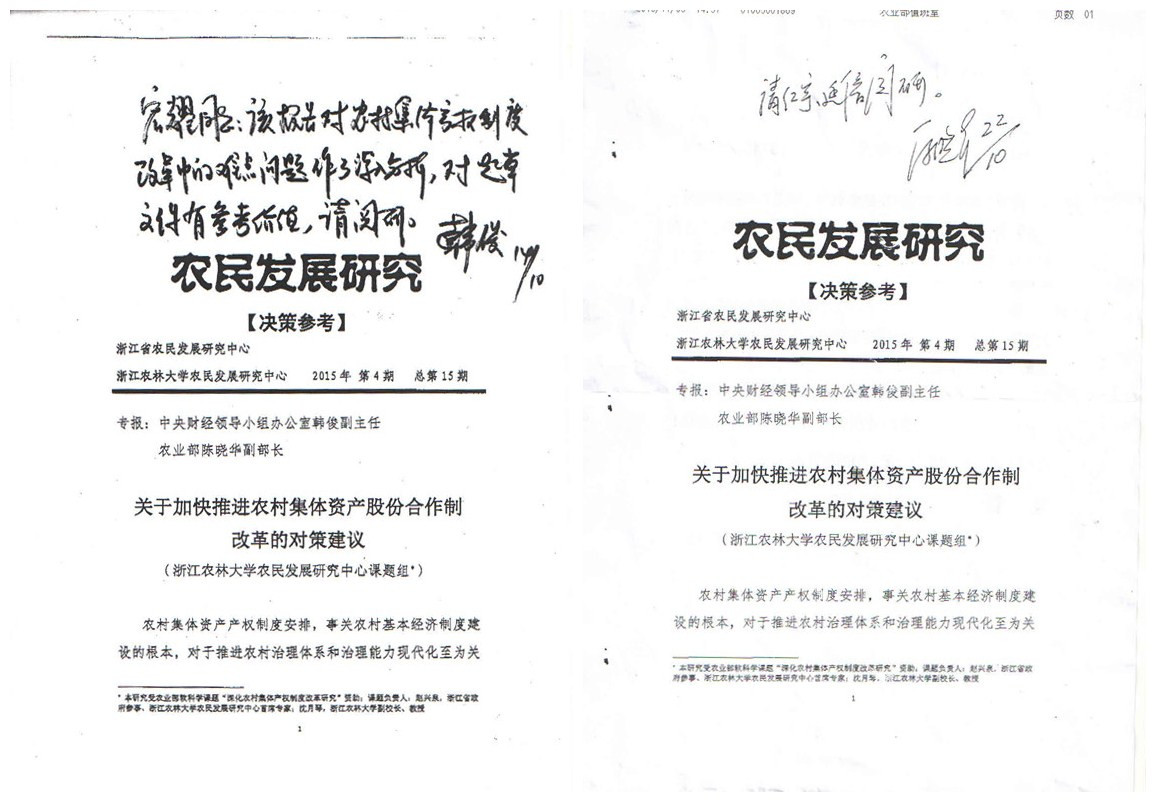 宏耀同志：该报告对农村集体产权制度
改革中的难点问题作了深入分析，对起草
文件有参考价值，请阅研。
韩俊
10
农民发展研究
【决策参考】
浙江省农民发展研究中心
浙江农林大学农民发展研究中心 2015年 第4期 总第15期
专报：中央财经领导小组办公室韩俊副主任
农业部陈晓华副部长
关于加快推进农村集体资产股份合作制
改革的对策建议
（浙江农林大学农民发展研究中心课题组*）
农村集体资产产权制度安排，事关农村基本经济制度建
设的根本，对于推进农村治理体系和治理能力现代化至为关
* 本研究受农业部软科学课题“深化农村集体产权制度改革研究”资助；课题负责人：赵兴泉，浙江省政
府参事、浙江农林大学农民发展研究中心首席专家；沈月琴，浙江农林大学副校长、教授
1
农业部值班室 页数 01
请仁宇、延信阅研。
22/10
农民发展研究
【决策参考】
浙江省农民发展研究中心
浙江农林大学农民发展研究中心 2015年 第4期 总第15期
专报：中央财经领导小组办公室韩俊副主任
农业部陈晓华副部长
关于加快推进农村集体资产股份合作制
改革的对策建议
（浙江农林大学农民发展研究中心课题组*）
农村集体资产产权制度安排，事关农村基本经济制度建
设的根本，对于推进农村治理体系和治理能力现代化至为关
* 本研究受农业部软科学课题“深化农村集体产权制度改革研究”资助；课题负责人：赵兴泉，浙江省政
府参事、浙江农林大学农民发展研究中心首席专家；沈月琴，浙江农林大学副校长、教授
1